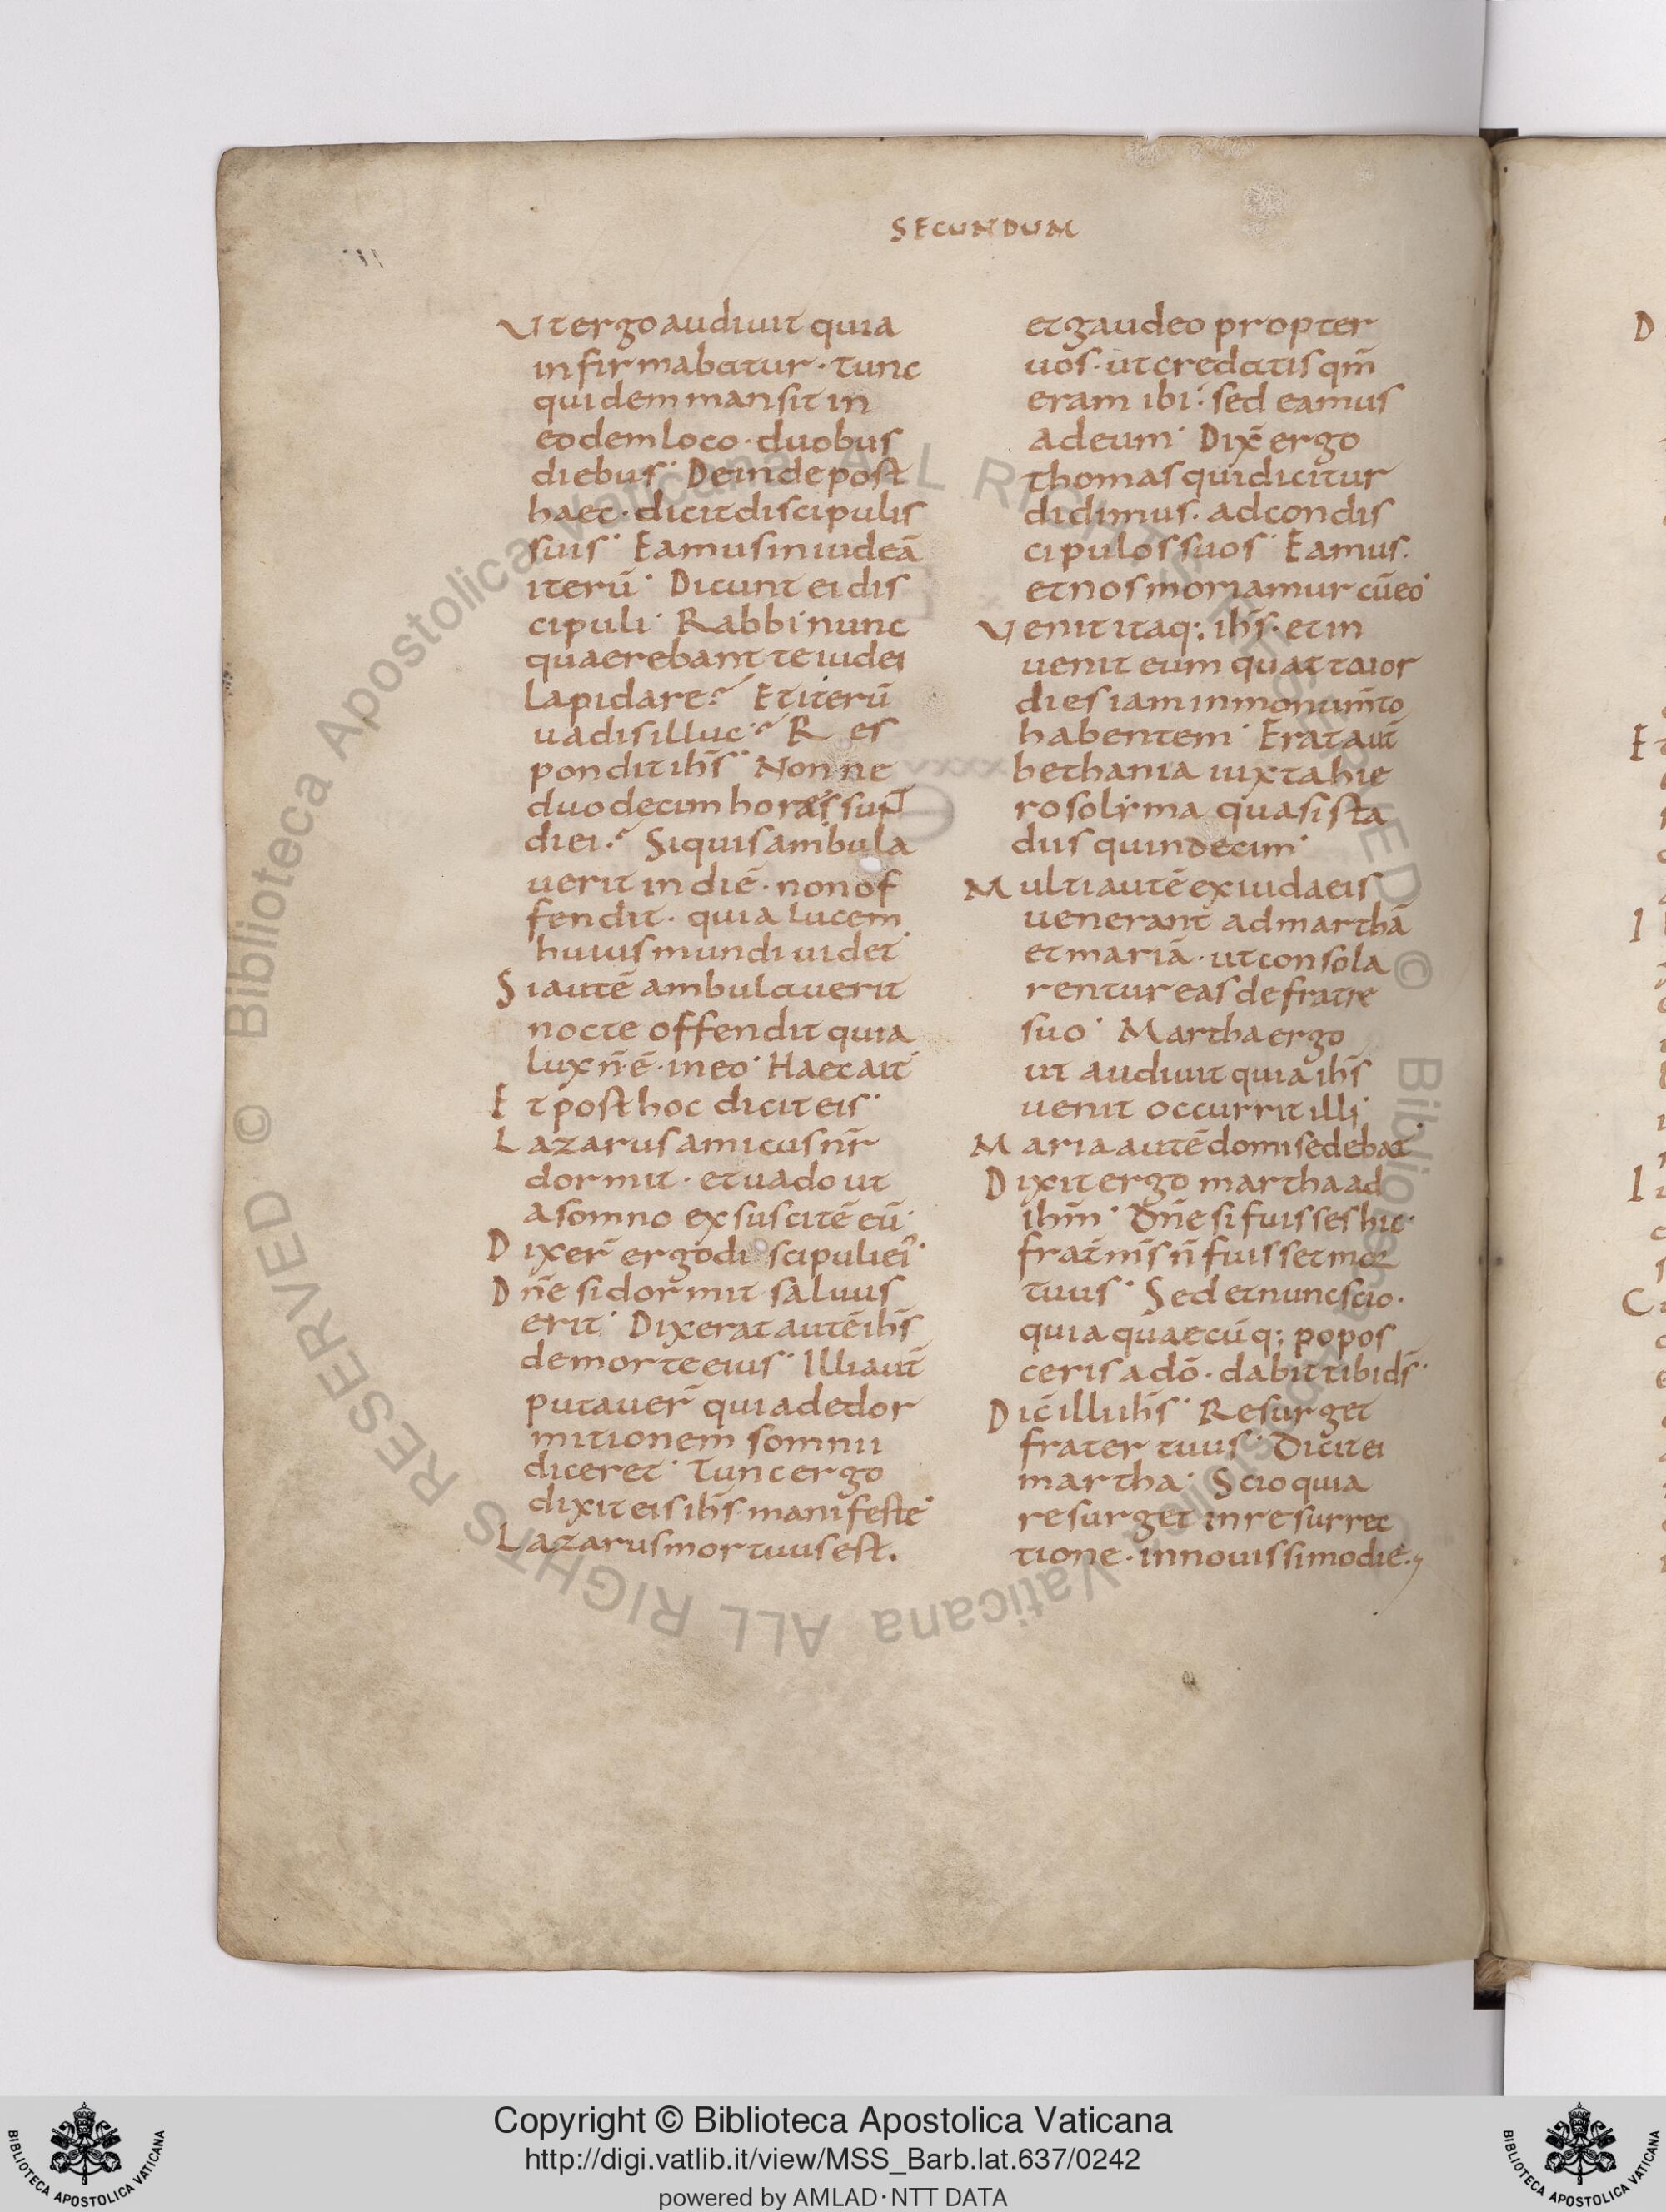 SECUNDUM
Ut ergo audiuit quia
infirmabatur · tunc
quidem mansit in
eodem loco · duobus
diebus· Deinde post
haec · dicit discipulis
suis· Eamus in iudeā
iterū· Dicunt ei dis
cipuli· Rabbi nunc
quaerebant te iudei
lapidare? Et iterū
uadis illuc? Res
pondit ihs̄· Nonne
duodecim horaes sunt
diei? Si quis ambula
uerit in diē · non of
fendit · quia lucem
huius mundi uidet·
Si autē ambulauerit
nocte offendit quia
lux n̄ ē · in eo· Haec ait·
Et post hoc dicit eis·
Lazarus amicus nr̄
dormit · et uado ut
a somno exsuscitē eū·
Dixer̄ ergo discipuli ei·
Dn̄e si dormit saluus
erit· Dixerat autē ihs̄
de morte eius· Illi aut̄
putauer̄ quia de dor
mitionem somnii
diceret· Tunc ergo
dixit eis ihs̄ manifeste·
Lazarus mortuus est.
et gaudeo propter
uos · ut credatis qm̄
eram ibi : sed eamus
ad eum· Dix̄ ergo
thomas qui dicitur
didimus · ad condis
cipulos suos· Eamus ·
et nos moriamur cū eo·
Uenit itaq; ihs̄ · et in
uenit eum quattuor
dies iam in monum̄to
habentem· Erat aut̄
bethania iuxta hie
rosolyma quasi sta
diis quindecim·
Multi autē ex iudaeis
uenerant ad marthā
et mariā · ut consola
rentur eas de fratre
suo· Martha ergo
ut audiuit quia ihs̄
uenit occurrit illi·
Maria autē domi sedebat·
Dixit ergo martha ad
ihm̄· Dn̄e si fuisses hic·
frat̄ m̄s n̄ fuisset mor
tuus· Sed et nunc scio·
quia quaecūq; popos
ceris a dō · dabit tibi ds̄·
Dic̄ illi ihs̄· Resurget
frater tuus· Dicit ei
martha· Scio quia
resurget in resurrec
tione · in nouissimo die·
D
E
I
I
C
Copyright © Biblioteca Apostolica Vaticana
http://digi.vatlib.it/view/MSS_Barb.lat.637/0242
powered by AMLAD·NTT DATA
BIBLIOTECA APOSTOLICA VATICANA
BIBLIOTECA APOSTOLICA VATICANA